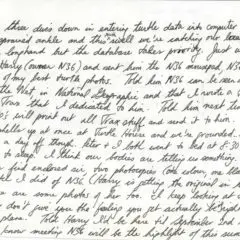 three days down in entering turtle data into computer
sprained ankle and this midst we're catching our
longhand but the database takes priority. Just
Harry (owner N36) and sent him the N36 a
of my best turtle photos. Told him N36 can be seen
the West in National Geographic and that I wrote a
Trax that I dedicated to him. Told him next ti
I'll print out all Trax stuff and send it to him.
shells up at once at Turtle House and we're grounded.
a day off though. Peter & I both went to bed at 8:30
to sleep. I think our bodies are telling us something.
find enclosed our two photocopies (one colour, one bla
I did of N36 (Harry is getting the original in
are some photos of her too. I keep looking at
don't give you the feeling you get actually
place. Told Harry I'd be here til September 2nd
know meeting N36 will be the highlight of this su